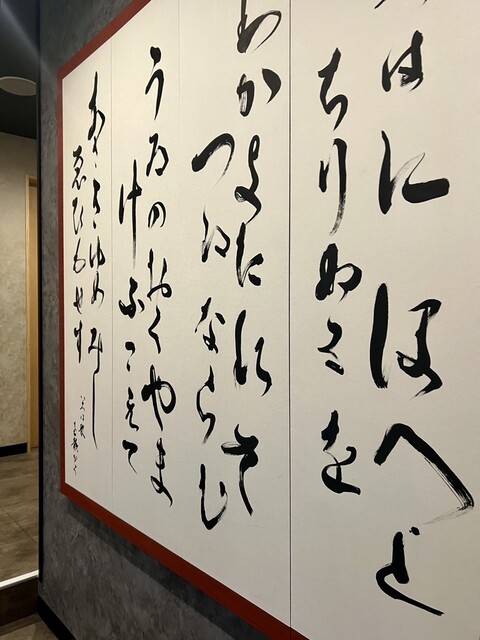 はにほへと
ちりぬるを
わかよたれそ
つねならむ
うゐのおくやま
けふこえて
あさきゆめみし
ゑひもせす